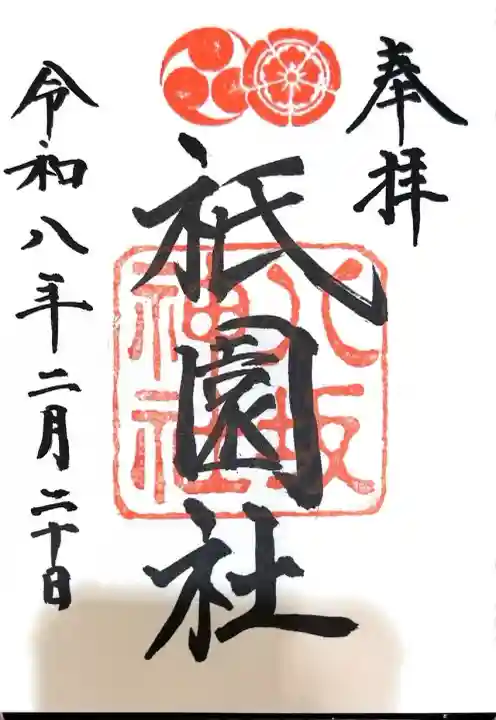 奉拝
八坂
神社
祇園社
令和八年二月二十日